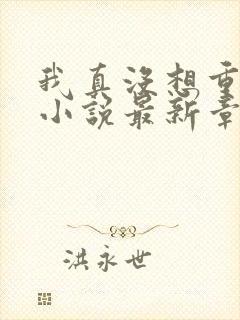 我真没想重
小说最新章
洪永世